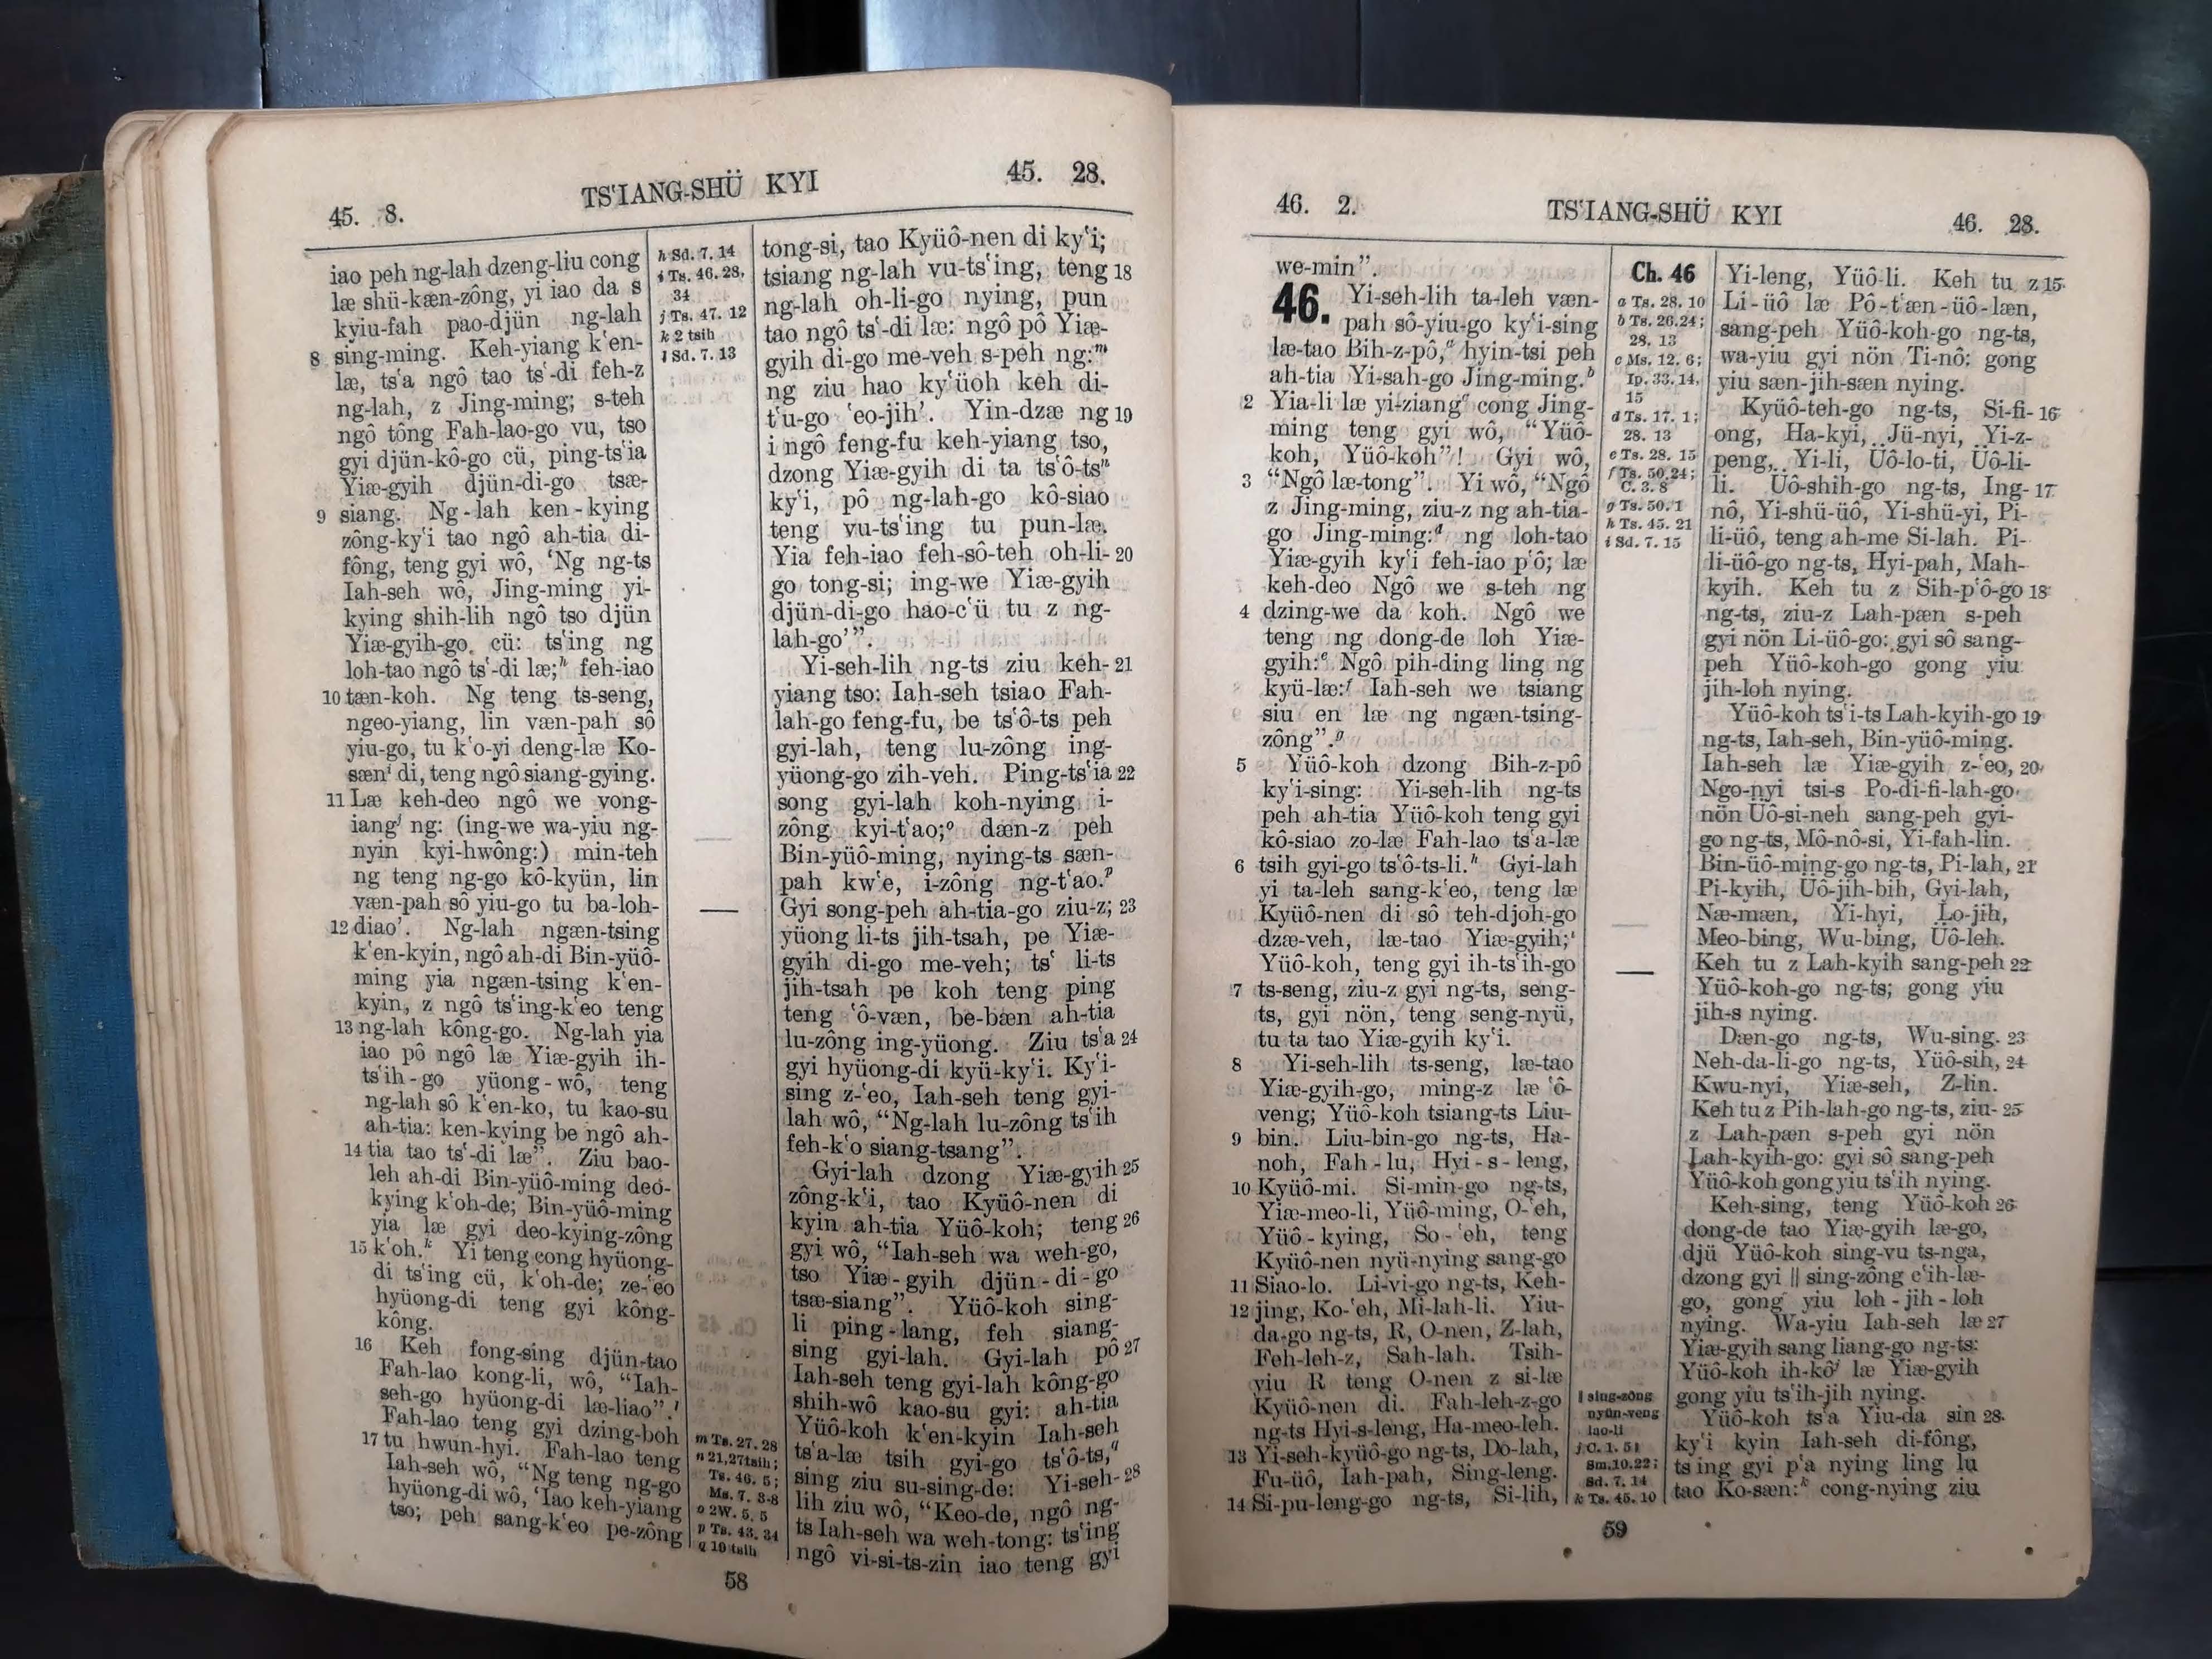 45. 8.
TSʻIANG-SHÜ KYI
45. 28.
iao peh ng-lah dzeng-liu cong
læ shü-kæn-zông, yi iao da s
kyiu-fah pao-djün ng-lah
8 sing-ming. Keh-yiang kʻen-
læ, tsʻa ngô tao tsʻ-di feh-z
ng-lah, z Jing-ming; s-teh
ngô tông Fah-lao-go vu, tso
gyi djün-kô-go cü, ping-tsʻia
Yiæ-gyih djün-di-go tsæ-
9 siang. Ng-lah ken-kying
zông-kyʻi tao ngô ah-tia di-
fông, teng gyi wô, ‘Ng ng-ts
Iah-seh wô, Jing-ming yi-
kying shih-lih ngô tso djün
Yiæ-gyih-go cü: tsʻing ng
loh-tao ngô tsʻ-di læ;h feh-iao
10 tæn-koh. Ng teng ts-seng,
ngeo-yiang, lin væn-pah sô
yiu-go, tu kʻo-yi deng-læ Ko-
sæni di, teng ngô siang-gying.
11 Læ keh-deo ngô we yong-
iangj ng: (ing-we wa-yiu ng-
nyin kyi-hwông:) min-teh
ng teng ng-go kô-kyün, lin
væn-pah sô yiu-go tu ba-loh-
12 diao’. Ng-lah ngæn-tsing
kʻen-kyin, ngô ah-di Bin-yüô-
ming yia ngæn-tsing kʻen-
kyin, z ngô tsʻing-kʻeo teng
13 ng-lah kông-go. Ng-lah yia
iao pô ngô læ Yiæ-gyih ih-
tsʻih-go yüong-wô, teng
ng-lah sô kʻen-ko, tu kao-su
ah-tia: ken-kying be ngô ah-
14 tia tao tsʻ-di læ”. Ziu bao-
leh ah-di Bin-yüô-ming deo-
kying kʻoh-de; Bin-yüô-ming
yia læ gyi deo-kying-zông
15 kʻoh.k Yi teng cong hyüong-
di tsʻing cü, kʻoh-de; ze-ʻeo
hyüong-di teng gyi kông-
kông.
16 Keh fong-sing djün-tao
Fah-lao kong-li, wô, “Iah-
seh-go hyüong-di læ-liao”.l
Fah-lao teng gyi dzing-boh
17 tu hwun-hyi. Fah-lao teng
Iah-seh wô, “Ng teng ng-go
hyüong-di wô, ‘Iao keh-yiang
tso; peh sang-kʻeo pe-zông
h Sd. 7. 14
i Ts. 46. 28,
34
j Ts. 47. 12
k 2 tsih
l Sd. 7. 13
m Ts. 27. 28
n 21,27tsih;
Ts. 46. 5;
Ms. 7. 3-8
o 2W. 5. 5
p Ts. 43. 34
q 19 tsih
tong-si, tao Kyüô-nen di kyʻi;
tsiang ng-lah vu-tsʻing, teng 18
ng-lah oh-li-go nying, pun
tao ngô tsʻ-di læ: ngô pô Yiæ-
gyih di-go me-veh s-peh ng:m
ng ziu hao kyʻüoh keh di-
tʻu-go ʻeo-jih’. Yin-dzæ ng 19
i ngô feng-fu keh-yiang tso,
dzong Yiæ-gyih di ta tsʻô-tsn
kyʻi, pô ng-lah-go kô-siao
teng vu-tsʻing tu pun-læ.
Yia feh-iao feh-sô-teh oh-li- 20
go tong-si; ing-we Yiæ-gyih
djün-di-go hao-cʻü tu z ng-
lah-go’”.
Yi-seh-lih ng-ts ziu keh- 21
yiang tso: Iah-seh tsiao Fah-
lah-go feng-fu, be tsʻô-ts peh
gyi-lah, teng lu-zông ing-
yüong-go zih-veh. Ping-tsʻia 22
song gyi-lah koh-nying i-
zông kyi-tʻao;o dæn-z peh
Bin-yüô-ming, nying-ts sæn-
pah kwʻe, i-zông ng-tʻao.p
Gyi song-peh ah-tia-go ziu-z; 23
yüong li-ts jih-tsah, pe Yiæ-
gyih di-go me-veh; tsʻ li-ts
jih-tsah pe koh teng ping
teng ʻô-væn, be-bæn ah-tia
lu-zông ing-yüong. Ziu tsʻa 24
gyi hyüong-di kyü-kyʻi. Kyʻi-
sing z-ʻeo, Iah-seh teng gyi-
lah wô, “Ng-lah lu-zông tsʻih
feh-kʻo siang-tsang”.
Gyi-lah dzong Yiæ-gyih 25
zông-kʻi, tao Kyüô-nen di
kyin ah-tia Yüô-koh; teng 26
gyi wô, “Iah-seh wa weh-go,
tso Yiæ-gyih djün-di-go
tsæ-siang”. Yüô-koh sing-
li ping-lang, feh siang-
sing gyi-lah. Gyi-lah pô 27
Iah-seh teng gyi-lah kông-go
shih-wô kao-su gyi: ah-tia
Yüô-koh kʻen-kyin Iah-seh
tsʻa-læ tsih gyi-go tsʻô-ts,q
sing ziu su-sing-de: Yi-seh- 28
lih ziu wô, “Keo-de, ngô ng-
ts Iah-seh wa weh-tong: tsʻing
ngô vi-si-ts-zin iao teng gyi
58
46. 2.
TSʻIANG-SHÜ KYI
46. 28.
we-min”.
46. Yi-seh-lih ta-leh væn-
pah sô-yiu-go kyʻi-sing
læ-tao Bih-z-pô,a hyin-tsi peh
ah-tia Yi-sah-go Jing-ming.b
2 Yia-li læ yi-ziangc cong Jing-
ming teng gyi wô, “Yüô-
koh, Yüô-koh”! Gyi wô,
3 “Ngô læ-tong”. Yi wô, “Ngô
z Jing-ming, ziu-z ng ah-tia-
go Jing-ming:d ng loh-tao
Yiæ-gyih kyʻi feh-iao pʻô; læ
keh-deo Ngô we s-teh ng
4 dzing-we da koh. Ngô we
teng ng dong-de loh Yiæ-
gyih:e Ngô pih-ding ling ng
kyü-læ:f Iah-seh we tsiang
siu en læ ng ngæn-tsing-
zông”.g
5 Yüô-koh dzong Bih-z-pô
kyʻi-sing: Yi-seh-lih ng-ts
peh ah-tia Yüô-koh teng gyi
kô-siao zo-læ Fah-lao tsʻa-læ
6 tsih gyi-go tsʻô-ts-li.h Gyi-lah
yi ta-leh sang-kʻeo, teng læ
Kyüô-nen di sô teh-djoh-go
dzæ-veh, læ-tao Yiæ-gyih;i
Yüô-koh, teng gyi ih-tsʻih-go
7 ts-seng, ziu-z gyi ng-ts, seng-
ts, gyi nön, teng seng-nyü,
tu ta tao Yiæ-gyih kyʻi.
8 Yi-seh-lih ts-seng, læ-tao
Yiæ-gyih-go, ming-z læ ʻô-
veng; Yüô-koh tsiang-ts Liu-
9 bin. Liu-bin-go ng-ts, Ha-
noh, Fah-lu, Hyi-s-leng,
10 Kyüô-mi. Si-min-go ng-ts,
Yiæ-meo-li, Yüô-ming, O-ʻeh,
Yüô-kying, So-ʻeh, teng
Kyüô-nen nyü-nying sang-go
11 Siao-lo. Li-vi-go ng-ts, Keh-
12 jing, Ko-ʻeh, Mi-lah-li. Yiu-
da-go ng-ts, R, O-nen, Z-lah,
Feh-leh-z, Sah-lah. Tsih-
yiu R teng O-nen z si-læ
Kyüô-nen di. Fah-leh-z-go
ng-ts Hyi-s-leng, Ha-meo-leh.
13 Yi-seh-kyüô-go ng-ts, Do-lah,
Fu-üô, Iah-pah, Sing-leng.
14 Si-pu-leng-go ng-ts, Si-lih,
Ch. 46
a Ts. 28. 10
b Ts. 26.24;
28. 13
c Ms. 12. 6;
Ip. 33. 14,
15
d Ts. 17. 1;
28. 13
e Ts. 28. 15
f Ts. 50.24;
C. 3. 8
g Ts. 50. 1
h Ts. 45. 21
i Sd. 7. 15
‖ sing-zông
nyün-veng
lao-li
j C. 1. 5;
Sm.10.22;
Sd. 7. 14
k Ts. 45. 10
Yi-leng, Yüô-li. Keh tu z 15
Li-üô læ Pô-tʻæn-üô-læn,
sang-peh Yüô-koh-go ng-ts,
wa-yiu gyi nön Ti-nô: gong
yiu sæn-jih-sæn nying.
Kyüô-teh-go ng-ts, Si-fi- 16
ong, Ha-kyi, Jü-nyi, Yi-z-
peng, Yi-li, Üô-lo-ti, Üô-li-
li. Üô-shih-go ng-ts, Ing- 17
nô, Yi-shü-üô, Yi-shü-yi, Pi-
li-üô, teng ah-me Si-lah. Pi-
li-üô-go ng-ts, Hyi-pah, Mah-
kyih. Keh tu z Sih-pʻô-go 18
ng-ts, ziu-z Lah-pæn s-peh
gyi nön Li-üô-go: gyi sô sang-
peh Yüô-koh-go gong yiu
jih-loh nying.
Yüô-koh tsʻi-ts Lah-kyih-go 19
ng-ts, Iah-seh, Bin-yüô-ming.
Iah-seh læ Yiæ-gyih z-ʻeo, 20
Ngo-nyi tsi-s Po-di-fi-lah-go
nön Üô-si-neh sang-peh gyi-
go ng-ts, Mô-nô-si, Yi-fah-lin.
Bin-üô-ming-go ng-ts, Pi-lah, 21
Pi-kyih, Üô-jih-bih, Gyi-lah,
Næ-mæn, Yi-hyi, Lo-jih,
Meo-bing, Wu-bing, Üô-leh.
Keh tu z Lah-kyih sang-peh 22
Yüô-koh-go ng-ts; gong yiu
jih-s nying.
Dæn-go ng-ts, Wu-sing. 23
Neh-da-li-go ng-ts, Yüô-sih, 24
Kwu-nyi, Yiæ-seh, Z-lin.
Keh tu z Pih-lah-go ng-ts, ziu- 25
z Lah-pæn s-peh gyi nön
Lah-kyih-go: gyi sô sang-peh
Yüô-koh gong yiu tsʻih nying.
Keh-sing, teng Yüô-koh 26
dong-de tao Yiæ-gyih læ-go,
djü Yüô-koh sing-vu ts-nga,
dzong gyi ‖ sing-zông cʻih-læ-
go, gong yiu loh-jih-loh
nying. Wa-yiu Iah-seh læ 27
Yiæ-gyih sang liang-go ng-ts:
Yüô-koh ih-kôj læ Yiæ-gyih
gong yiu tsʻih-jih nying.
Yüô-koh tsʻa Yiu-da sin 28
kyʻi kyin Iah-seh di-fông,
tsʻing gyi pʻa nying ling lu
tao Ko-sæn:k cong-nying ziu
59